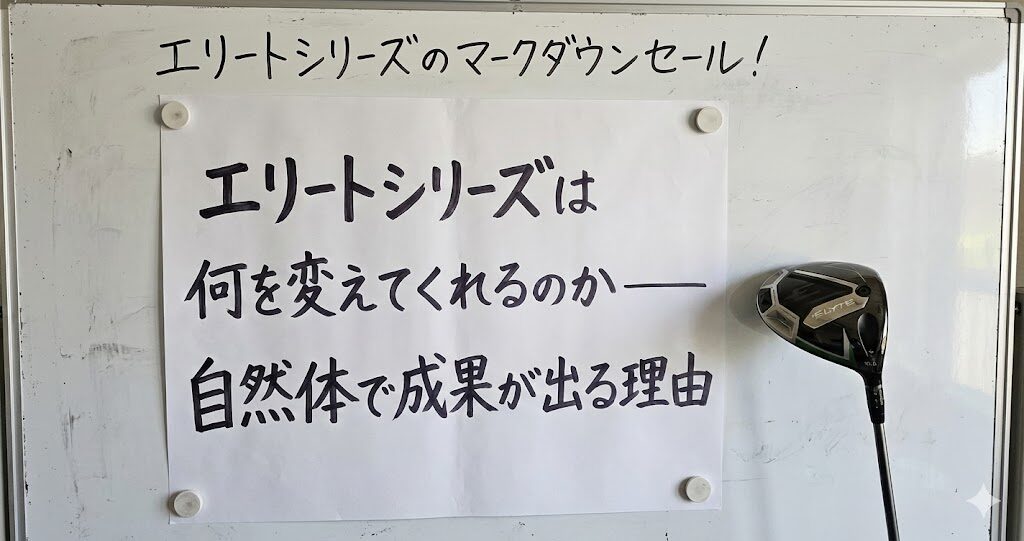 エリートシリーズのマークダウンセール!
エリートシリーズは
何を変えてくれるのか――
自然体で成果が出る理由
ELYTE